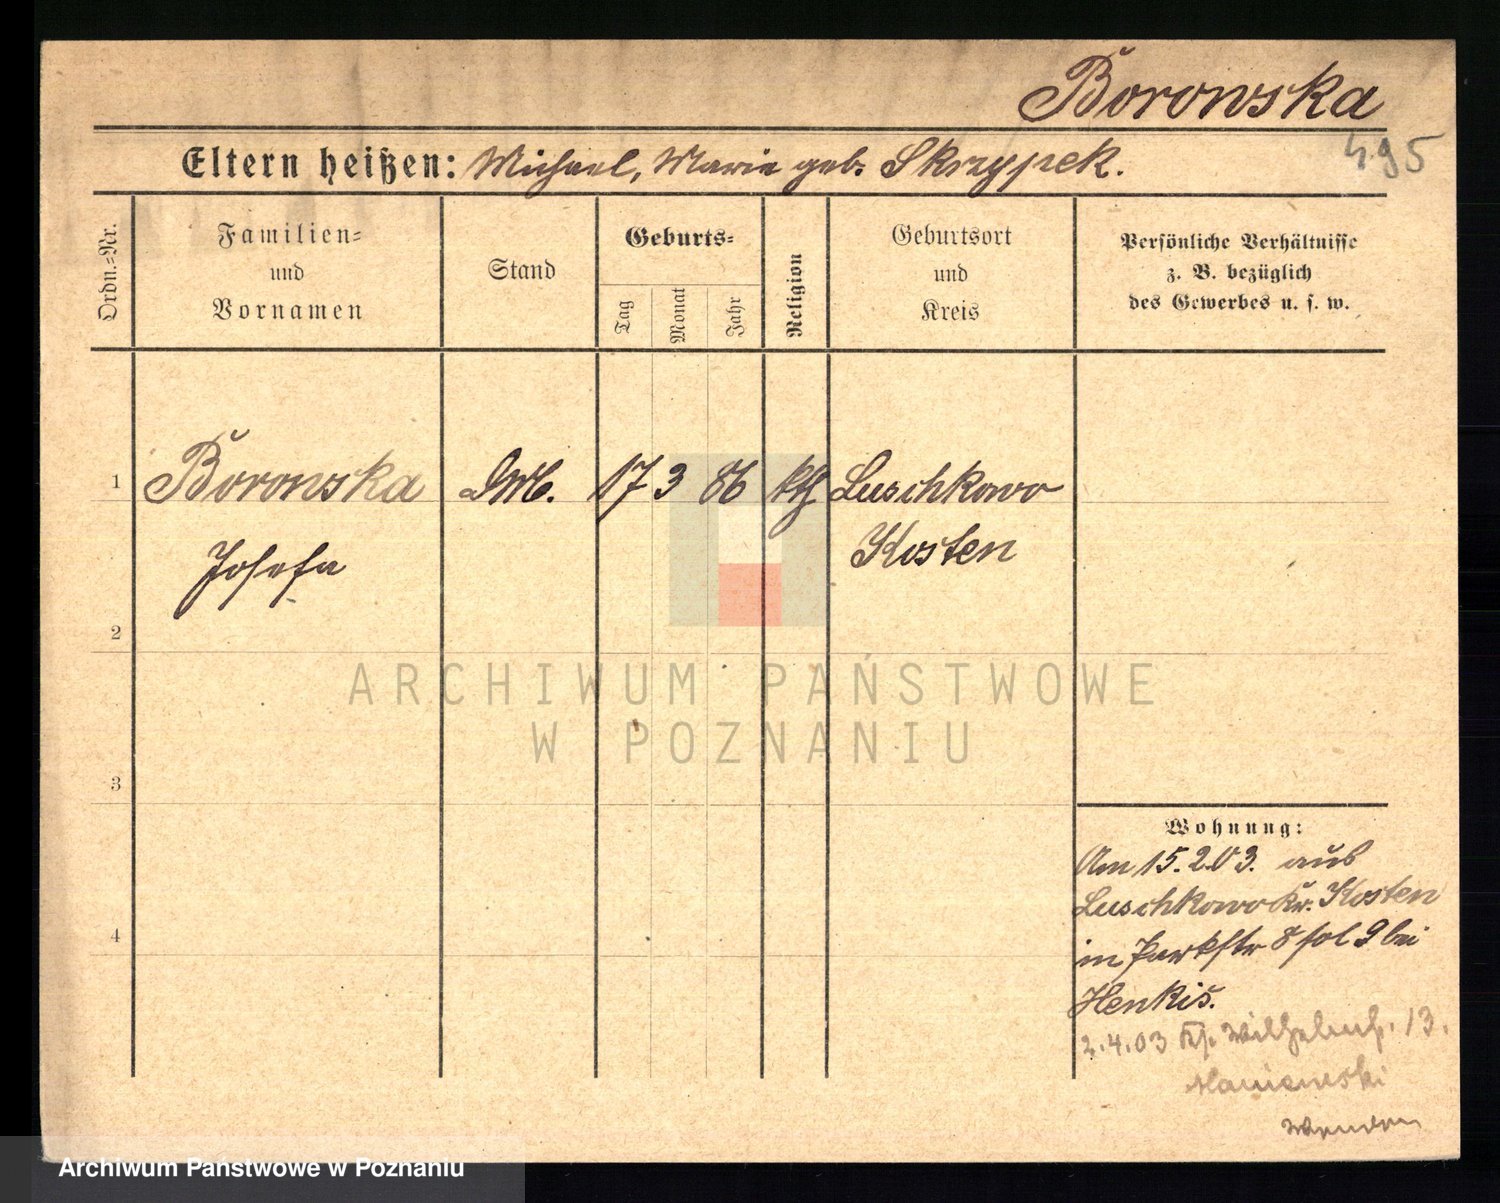 Borowska
495
Eltern heißen: Michael, Marie geb. Skrzypek.
Ordn.-Nr.
Familien-
und
Vornamen
Stand
Geburts-
Tag
Monat
Jahr
Religion
Geburtsort
und
Kreis
Persönliche Verhältnisse
z. B. bezüglich
des Gewerbes u. s. w.
1 Borowska 17 3 86 kth Luschkowo
Josefa Kosten
2
ARCHIWUM PAŃSTWOWE
W POZNANIU
3
Wohnung:
Am 15.2.03. aus
Luschkowo Kr. Kosten
4
in Parkstr 8 fol 9 bei
Henkis.
2.4.03 Wilhelmstr. 13.
Archiwum Państwowe w Poznaniu